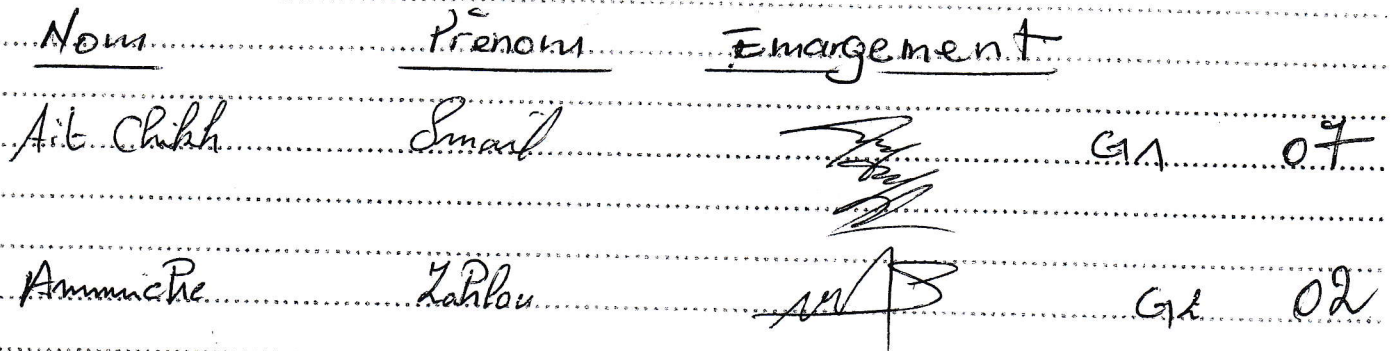 Nom Prénom Emargement
Ait Chikh Smail G1 07
Ammiche Zahlou G2 02